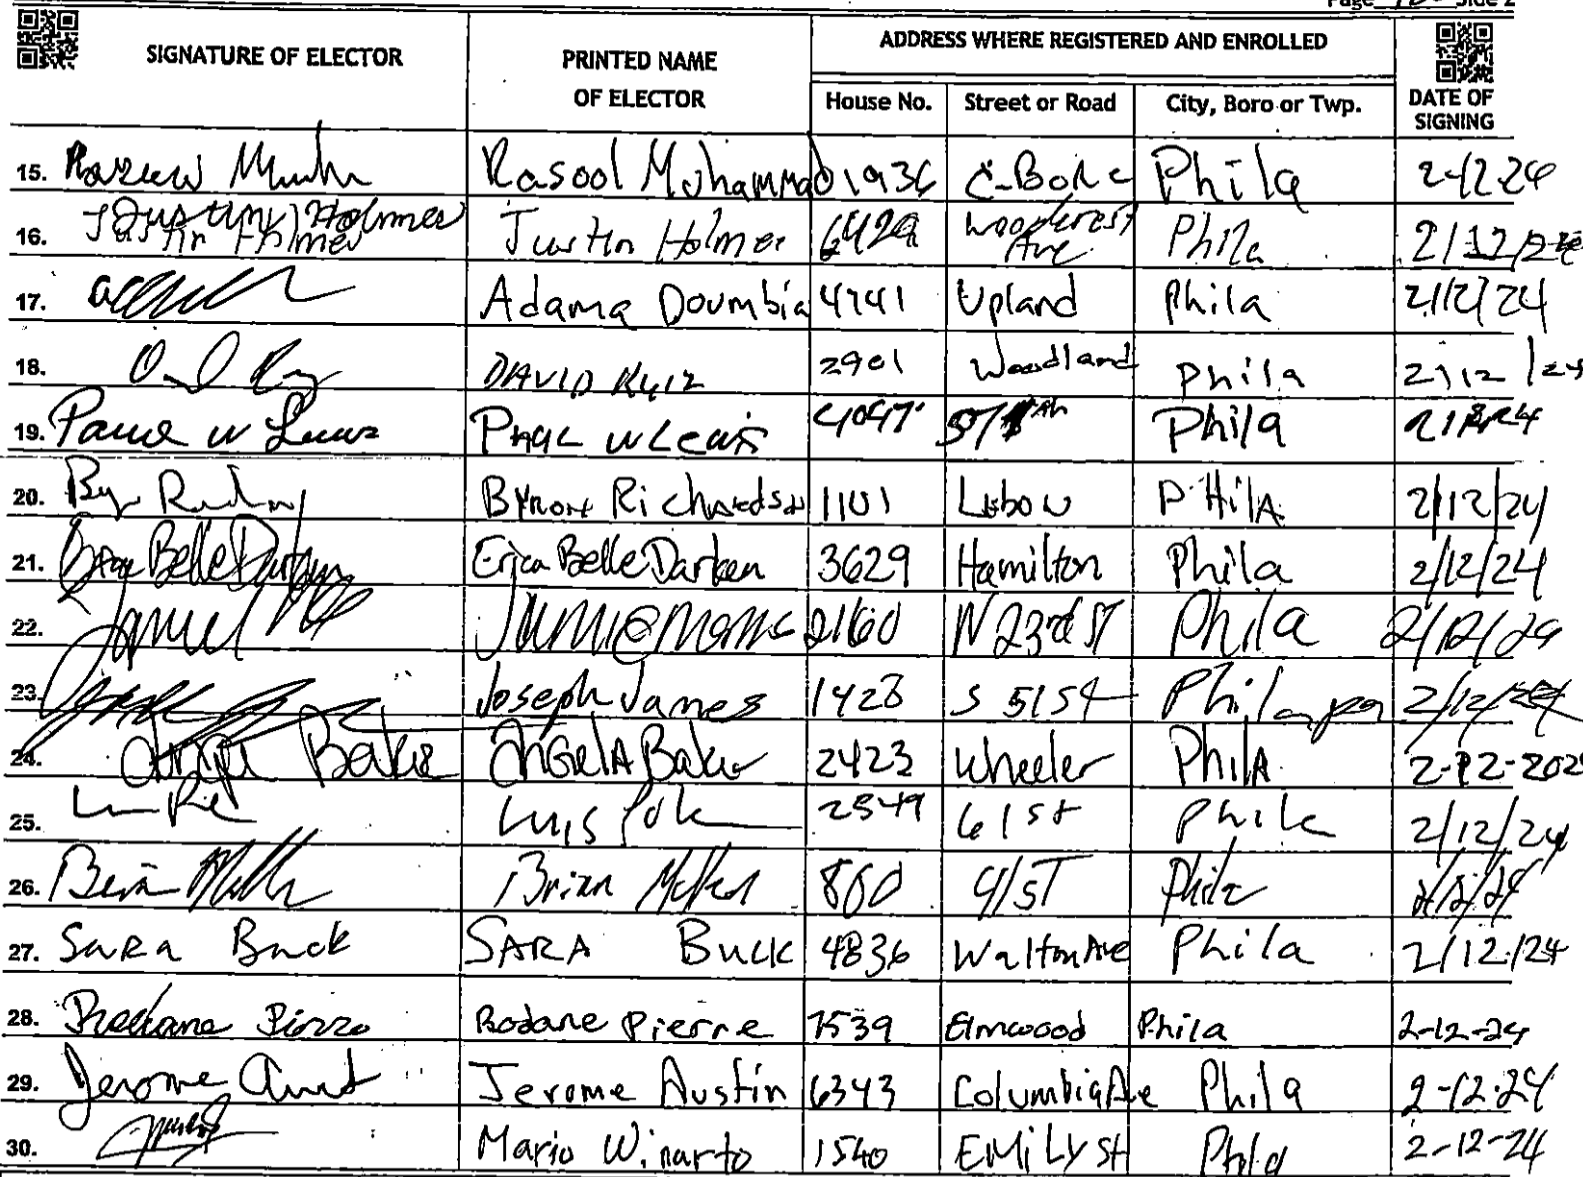 Page Side 2
SIGNATURE OF ELECTOR PRINTED NAME OF ELECTOR ADDRESS WHERE REGISTERED AND ENROLLED
House No. Street or Road City, Boro or Twp. DATE OF SIGNING
15. Rasool Mohammad 1936 Phila 2-12-24
16. Justin Holmes Justin Holmes 6429 Woodcrest Ave Phila 2/12/24
17. Adama Doumbia 4741 Upland Phila 2/12/24
18. DAVID RUIZ 2901 Woodland Phila 2/12/24
19. Paul W Lewis 4047 Phila
20. Byron Richardson 1101 PHilA 2/12/24
21. Erica Belle Darken Erica Belle Darken 3629 Hamilton Phila 2/12/24
22. 2160 N 23rd ST Phila 2/12/24
23. Joseph James 1428 S 51St 2/12/24
24. Angela Baker ANGelA Baker 2423 Wheeler PhilA 2-12-202
25. Luis 2549 61st Phila 2/12/24
26. Brian 860 41ST Phila 2/12/24
27. SaRa Buck SARA Buck 4836 Walton Ave Phila 2/12/24
28. Rodane Pierre 7539 Elmwood Phila 2-12-24
29. Jerome Jerome Austin 6343 Columbia Ave Phila 2-12-24
30. Mario Winarto 1540 EMiLy St Phila 2-12-24